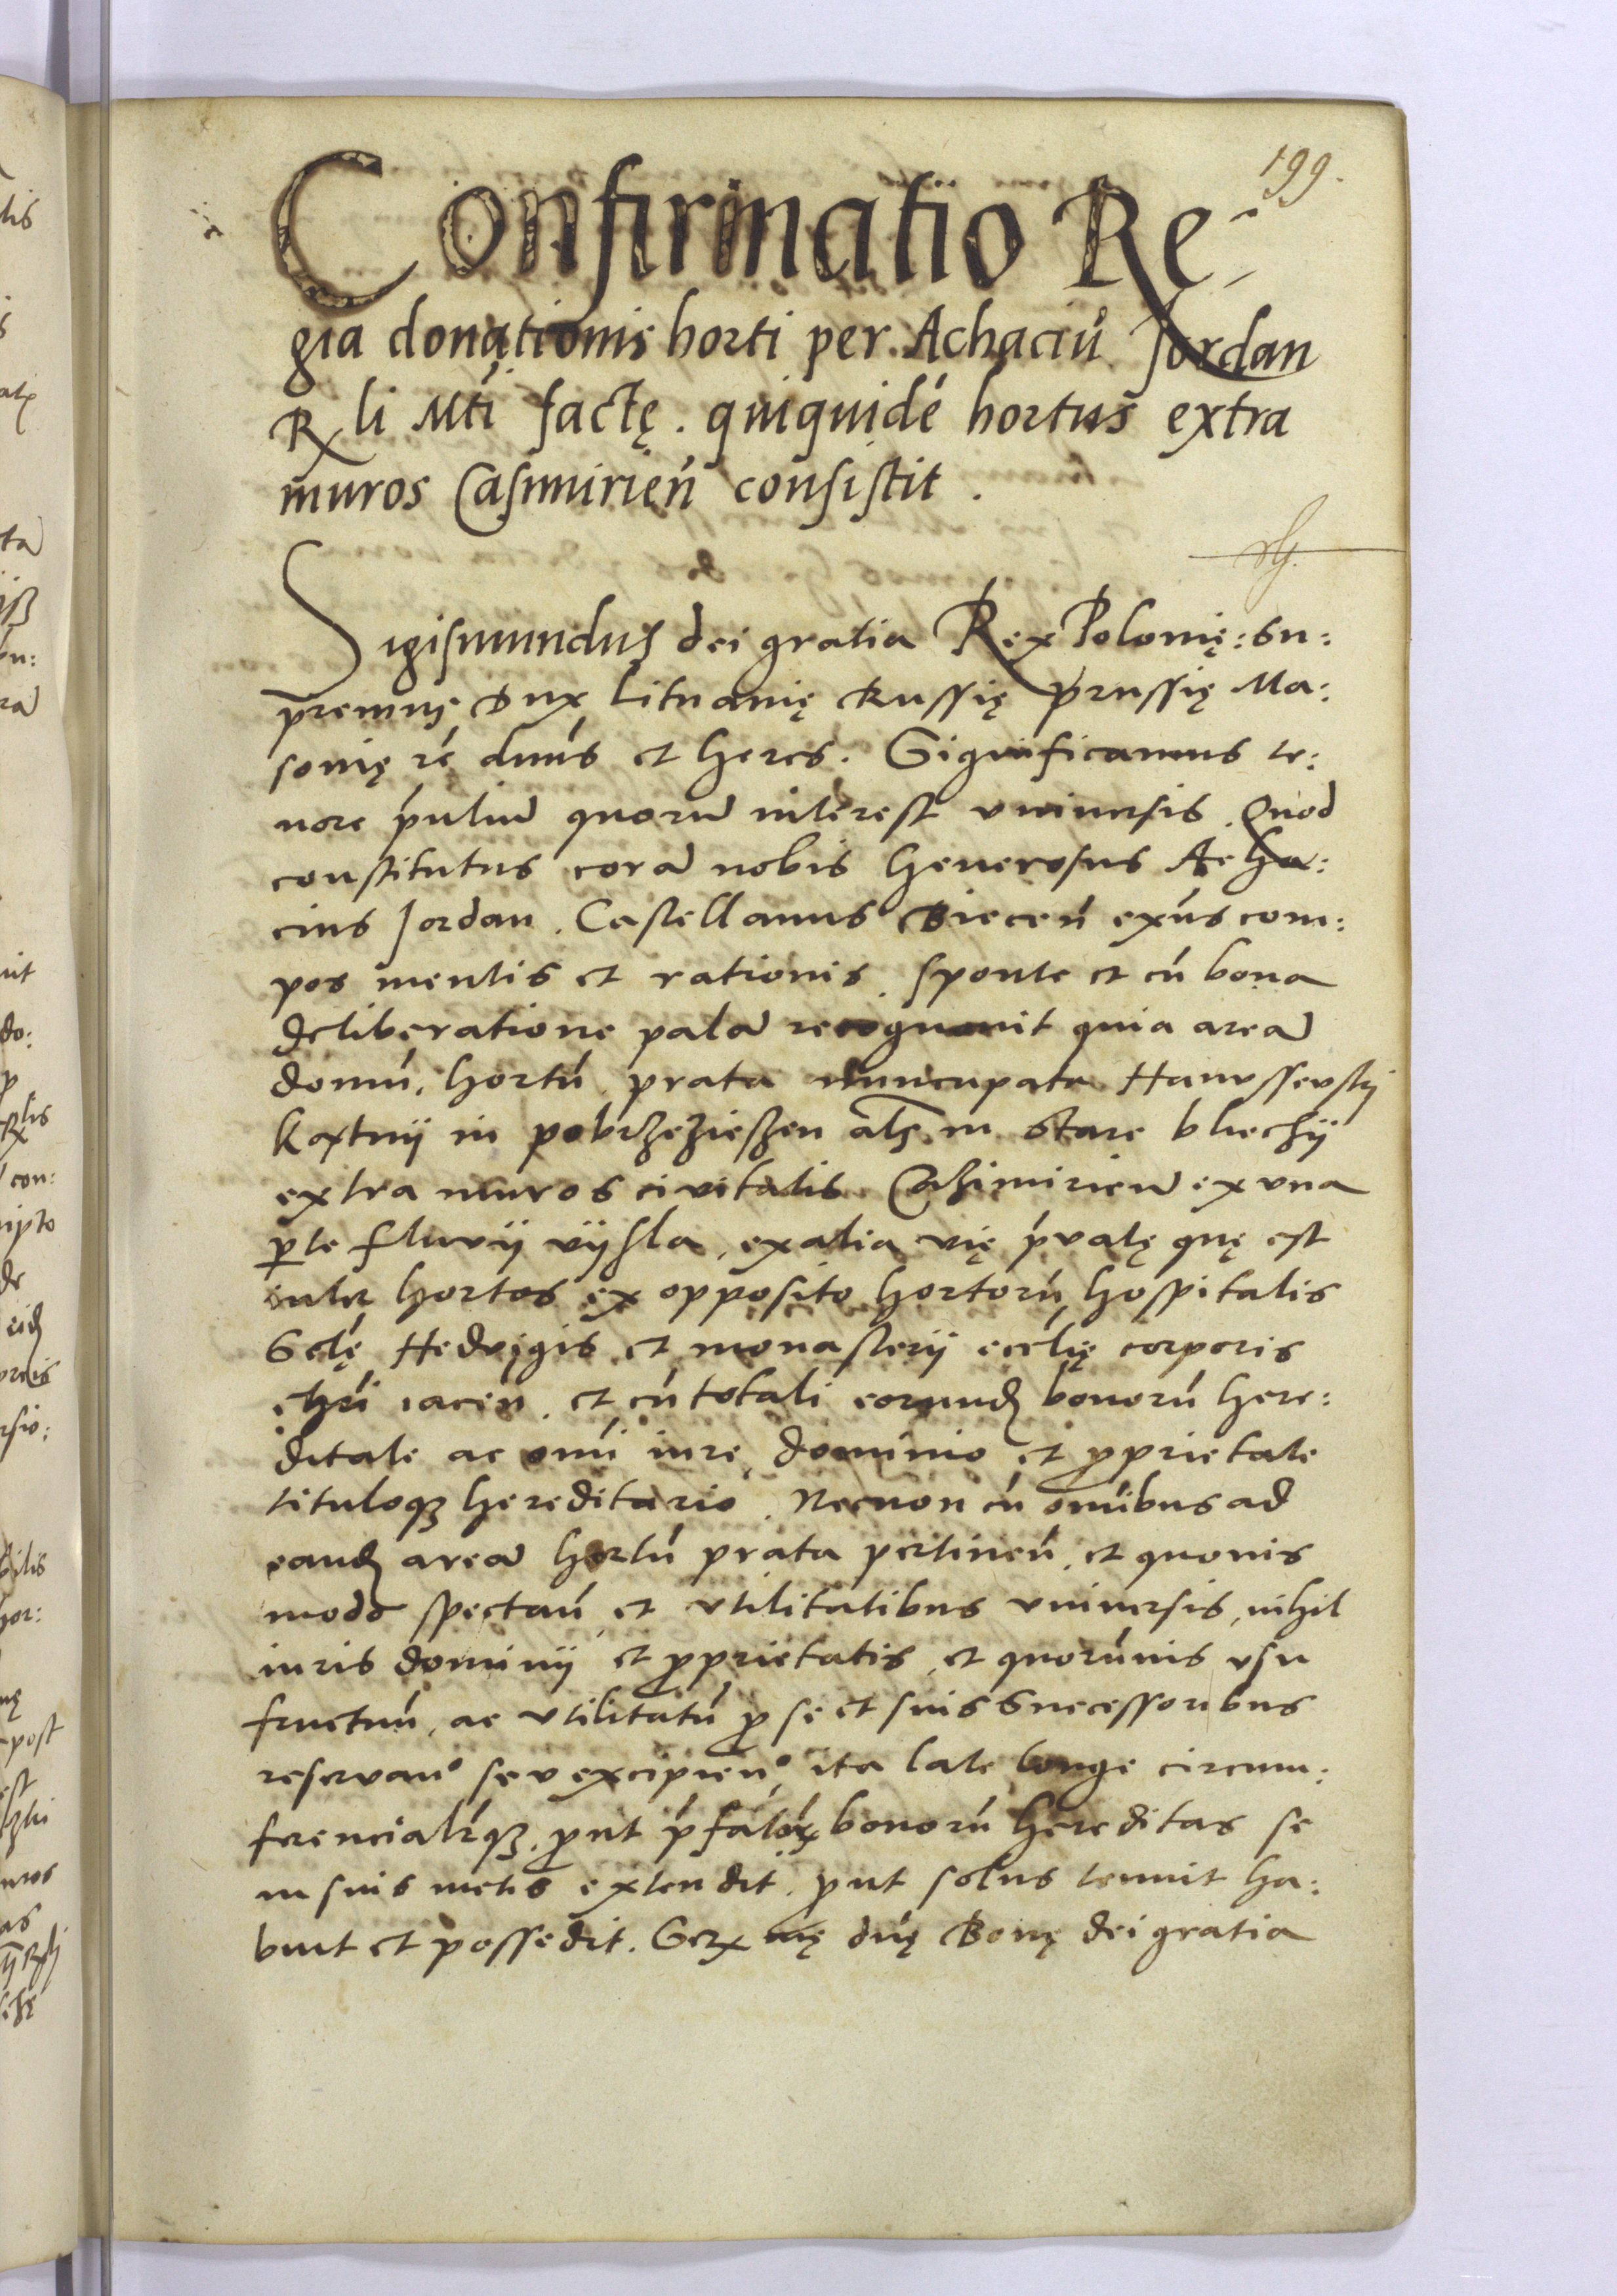 199.
Confirmatio Re-
gia donationis horti per Achaciu͂ Jordan
Rli Mti factę. quiquidé hortus extra
muros Casimirień consistit.
Sigismundus dei gratia Rex Polonię: Su:
premus Dux Lituanię Russię prussię Ma:
sonię rć dnús et heres. Significamus te:
nore pńtium quorum interest vniuersis. Quod
constitutus coram nobis Generosus Acha:
cius Jordan. Castellanus Biecen͂ exn͂s com:
pos mentis et rationis. sponte et cú bona
deliberatione palam recognouit quia aream
domú, hortú prata nuncupata
in als in Stare bliechy
extra muros ciuitatis Cazimirien͂ ex vna
ꝑte fluuij vijsla, ex alia vię pũatę quę est
inter hortos ex opposito hortorú hospitalis
Sctę Hedvigis et monasterij ecclię corporis
chri͂ iacen͂. et cú totali eorund bonorú here:
ditate ac om͂i iure, dominio et ꝓprietate
tituloqꝫ hereditario. Necnon cú om͂ibus ad
eand aream hortú prata pertinen͂. et quouis
modo spectan͂ et vtilitatibus vniuersis, nihil
iuris dominij et ꝓprietatis, et quorúuis vsu
fructuú, ac vtilitatú ꝓ se et suis Successoribus
reseruan͂o seu excipien͂o, ita late longe circum:
ferencialrqꝫ. ꝓut p͂fatoꝝ bonorú hereditas se
in suis metis extendit. ꝓut solus tenuit ha:
buit et possedit. dn͂ę Bonę dei gratia